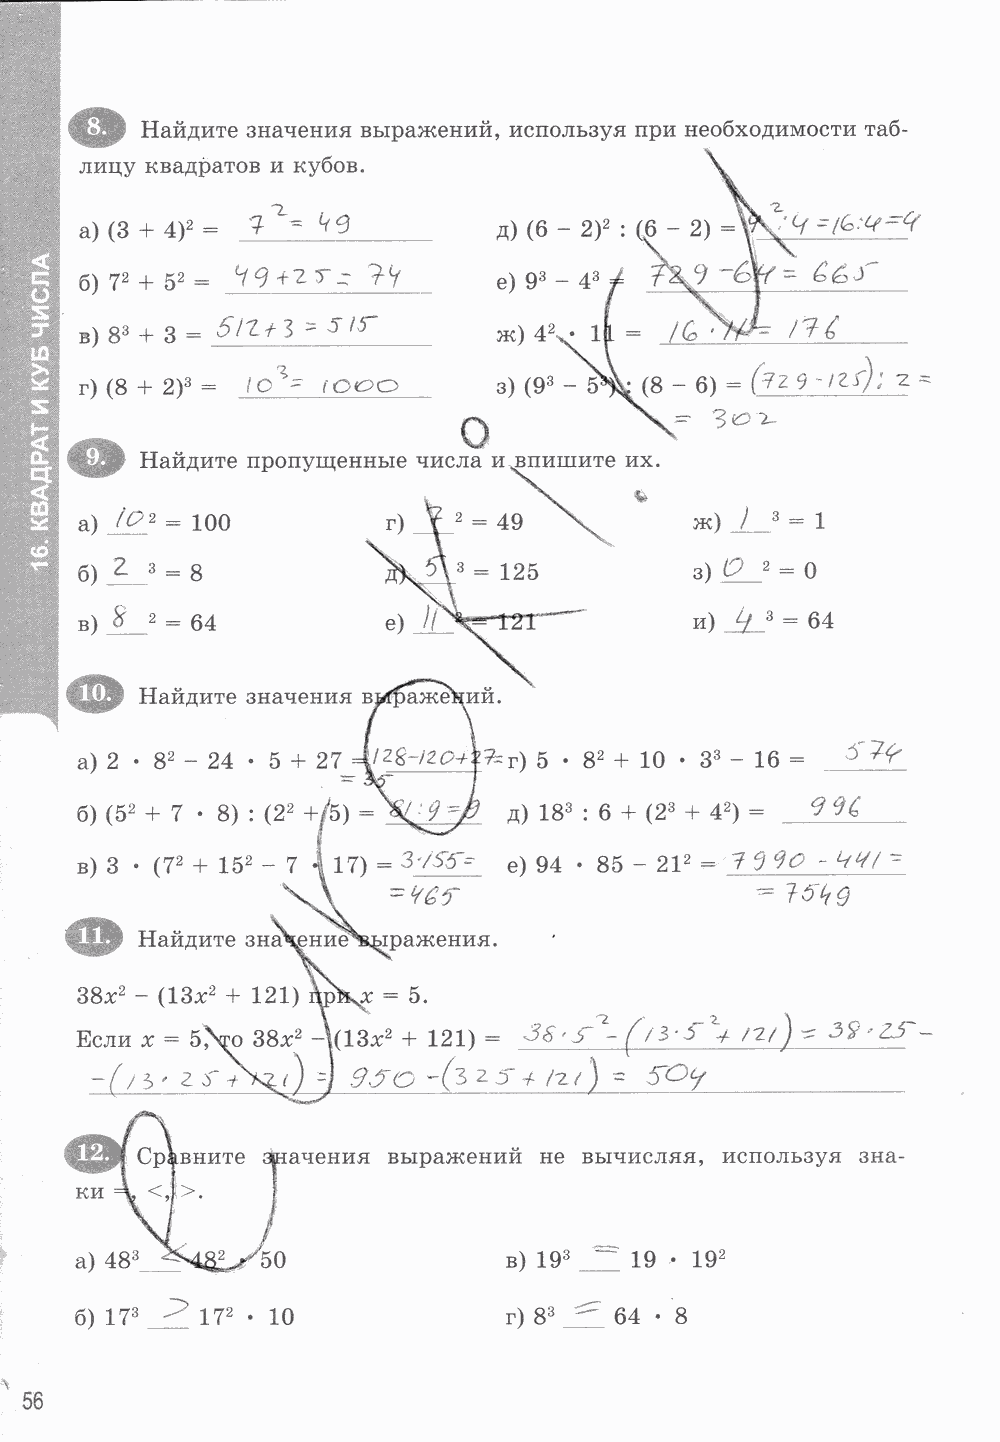 16. КВАДРАТ И КУБ ЧИСЛА
8. Найдите значения выражений, используя при необходимости таб-
лицу квадратов и кубов.
а) (3 + 4)² = 7² = 49
б) 7² + 5² = 49+25 = 74
в) 8³ + 3 = 512+3 = 515
г) (8 + 2)³ = 10³ = 1000
д) (6 − 2)² : (6 − 2) = 4² : 4 = 16:4 = 4
е) 9³ − 4³ = 729 − 64 = 665
ж) 4² · 11 = 16 · 11 = 176
з) (9³ − 5³) : (8 − 6) = (729 − 125) : 2 =
= 302
9. Найдите пропущенные числа и впишите их.
а) 10² = 100
б) 2³ = 8
в) 8² = 64
г) 7² = 49
д) 5³ = 125
е) 11² = 121
ж) 1³ = 1
з) 0² = 0
и) 4³ = 64
10. Найдите значения выражений.
а) 2 · 8² − 24 · 5 + 27 = 128−120+27=
= 35
б) (5² + 7 · 8) : (2² + 5) = 81:9=9
в) 3 · (7² + 15² − 7 · 17) = 3·155=
=465
г) 5 · 8² + 10 · 3³ − 16 = 574
д) 18³ : 6 + (2³ + 4²) = 996
е) 94 · 85 − 21² = 7990 − 441 =
= 7549
11. Найдите значение выражения.
38x² − (13x² + 121) при x = 5.
Если x = 5, то 38x² − (13x² + 121) = 38·5² − (13·5² + 121) = 38·25 −
−(13·25 + 121) = 950 −(325 + 121) = 504
12. Сравните значения выражений не вычисляя, используя зна-
ки =, <, >.
а) 48³ < 48² · 50
б) 17³ > 17² · 10
в) 19³ = 19 · 19²
г) 8³ = 64 · 8
56